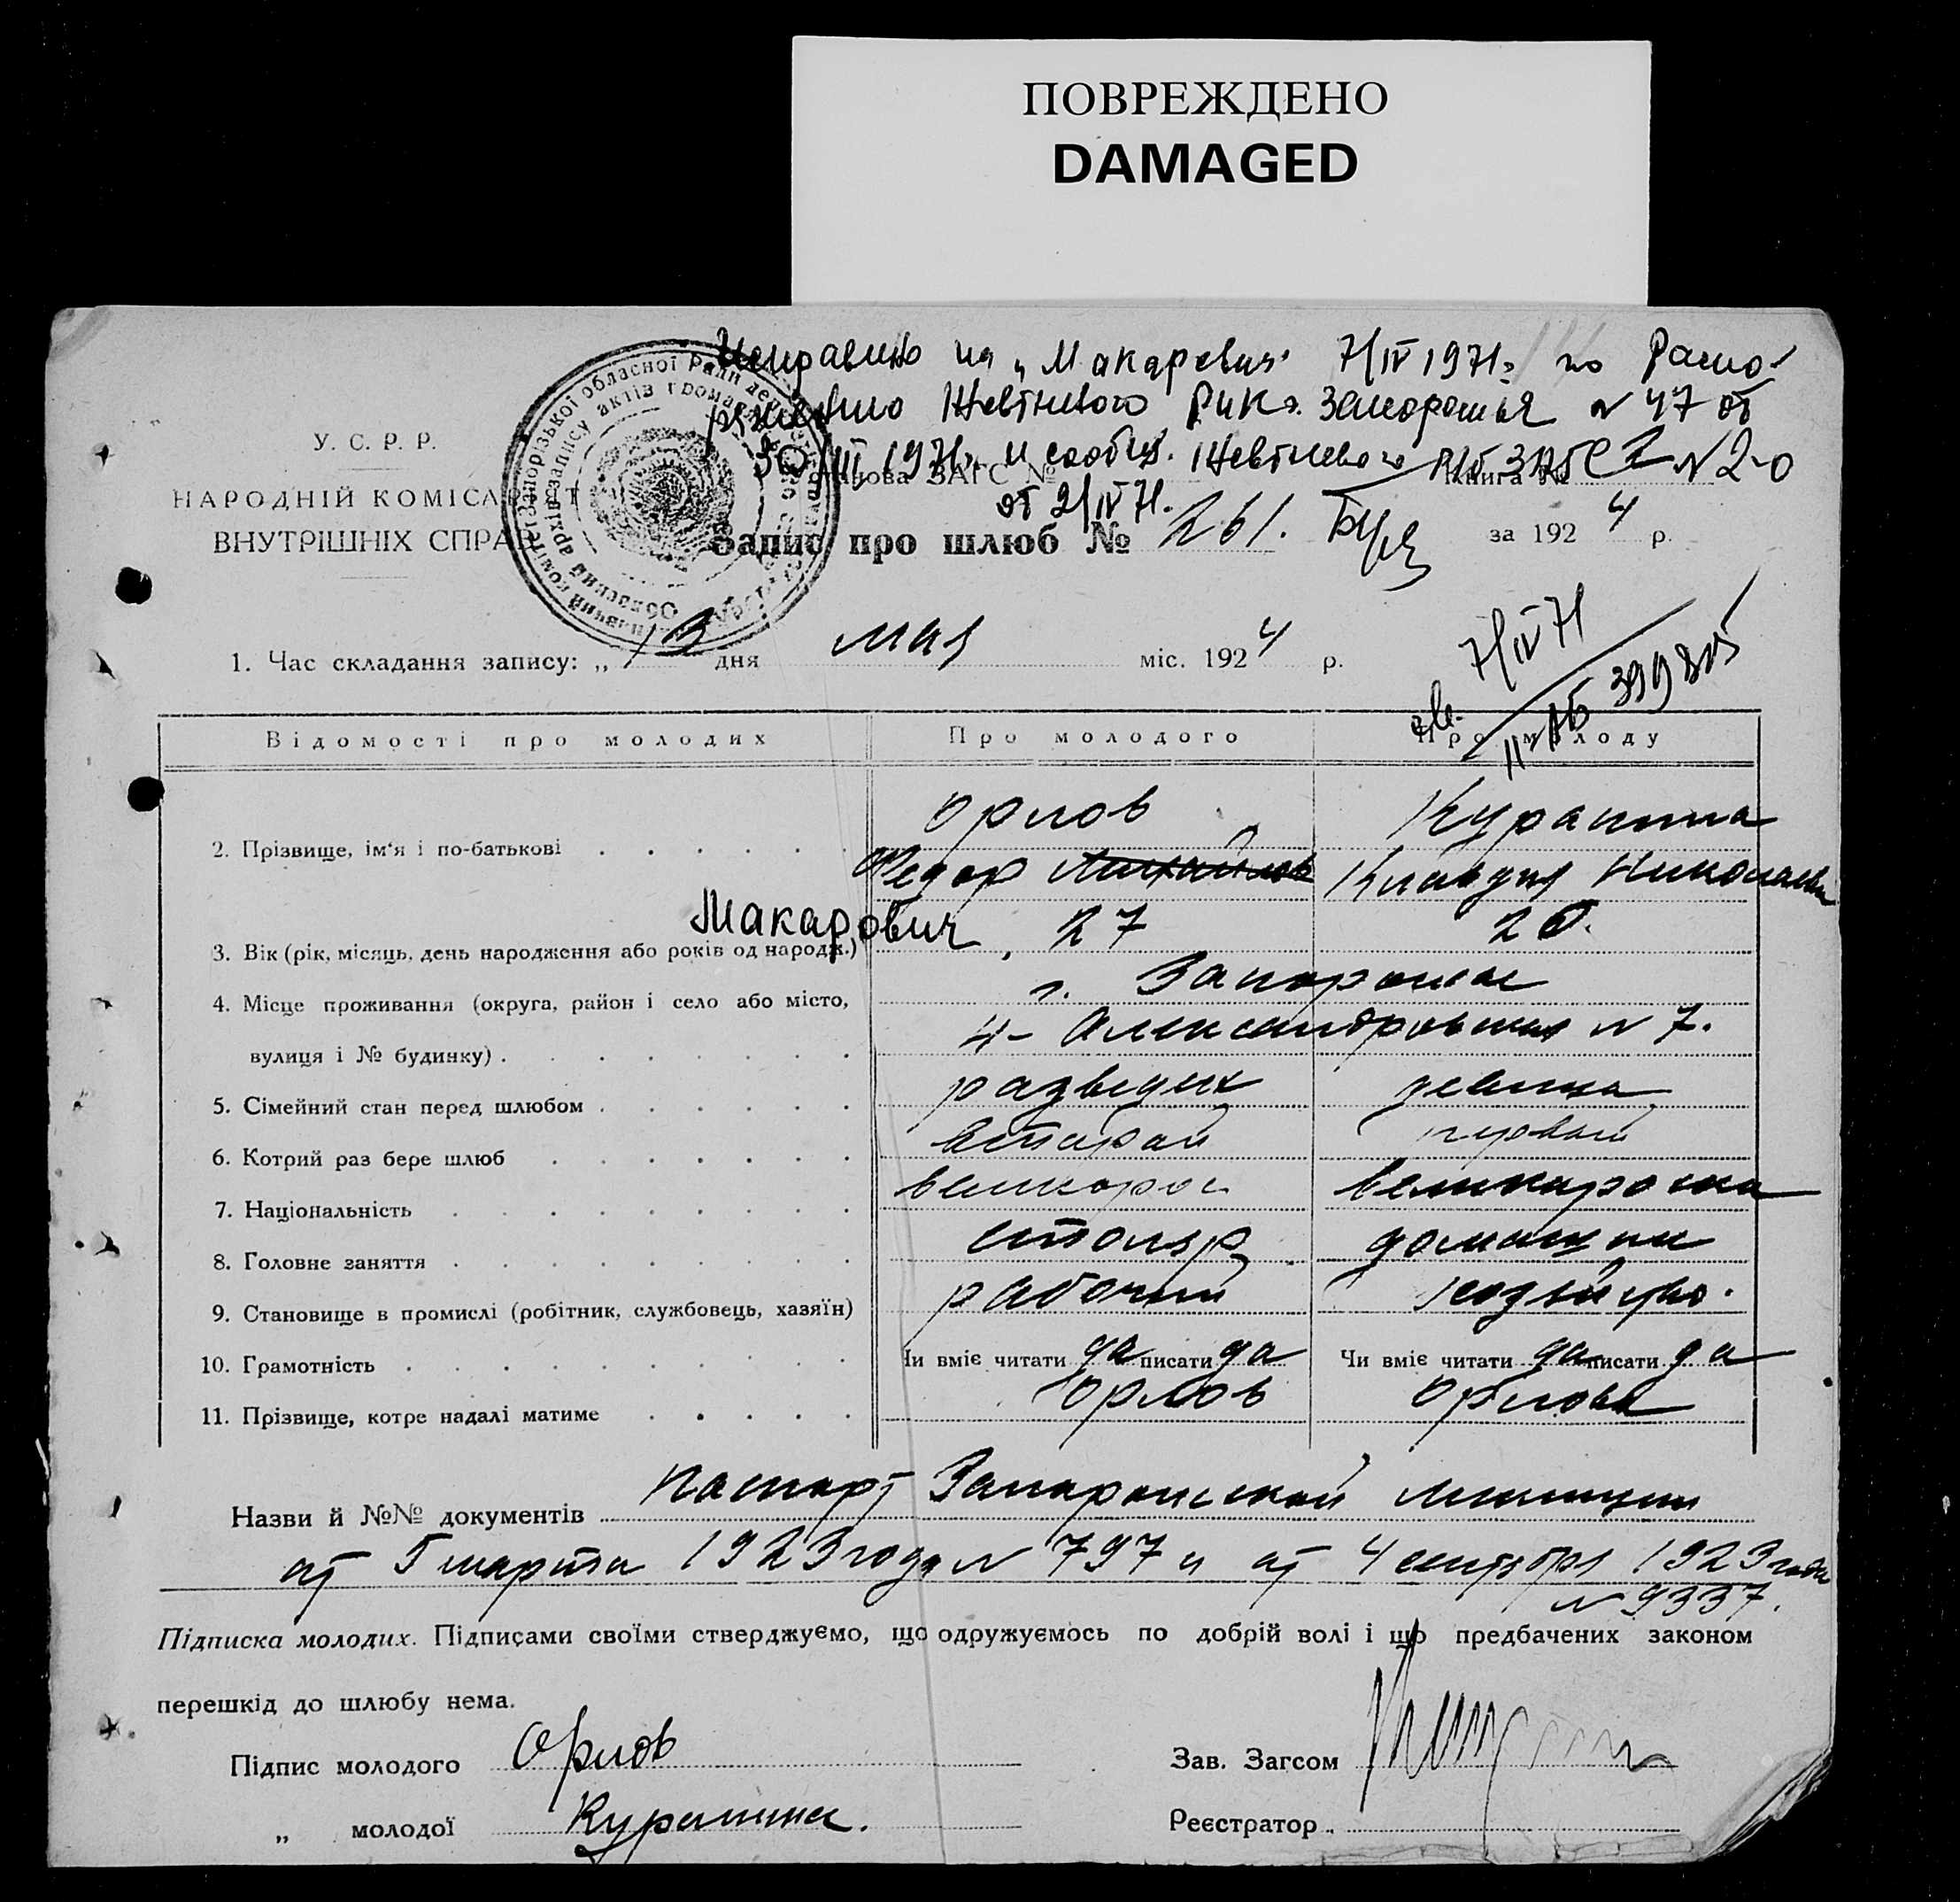 ПОВРЕЖДЕНО
DAMAGED
Исправлено на „Макарович" 7/IV 1971г по Распо-
ряжению Жовтневого Рик г. Запорожья N 47 от
30/III 1971г. и сообщ. Жовтневого N 2-0
от 2/IV 71.
У. С. Р. Р.
НАРОДНІЙ КОМІСАРІАТ
ВНУТРІШНІХ СПРАВ
ЗАГС №
Книга №
Запис про шлюб № 261. за 1924 р.
7/IV 71
II-АБ 399815
1. Час складання запису: „13 дня мая міс. 1924 р.
Відомості про молодих Про молодого Про молоду
2. Прізвище, ім'я і по-батькові Орлов Куранина
Федор Михайлов Клавдия Николаевн
Макарович
3. Вік (рік, місяць, день народження або років од народж.) 27 20.
4. Місце проживання (округа, район і село або місто, г. Запорожье
вулиця і № будинку) 4- Александровская N 7.
5. Сімейний стан перед шлюбом разведен девица
6. Котрий раз бере шлюб второй первый
7. Національність великорос великороска
8. Головне заняття столяр домашнее
9. Становище в промислі (робітник, службовець, хазяїн) рабочий хозяйство.
10. Грамотність Чи вміє читати да писати да Чи вміє читати да писати да
11. Прізвище, котре надалі матиме Орлов Орлова
Назви й №№ документів Паспорт Запорожской милиции
от 5 марта 1923 года N 797 и от 4 сентября 1923 года
N 9337.
Підписка молодих. Підписами своїми стверджуємо, що одружуємось по добрій волі і що предбачених законом
перешкід до шлюбу нема.
Підпис молодого Орлов Зав. Загсом
„ молодої Куранина. Реєстратор